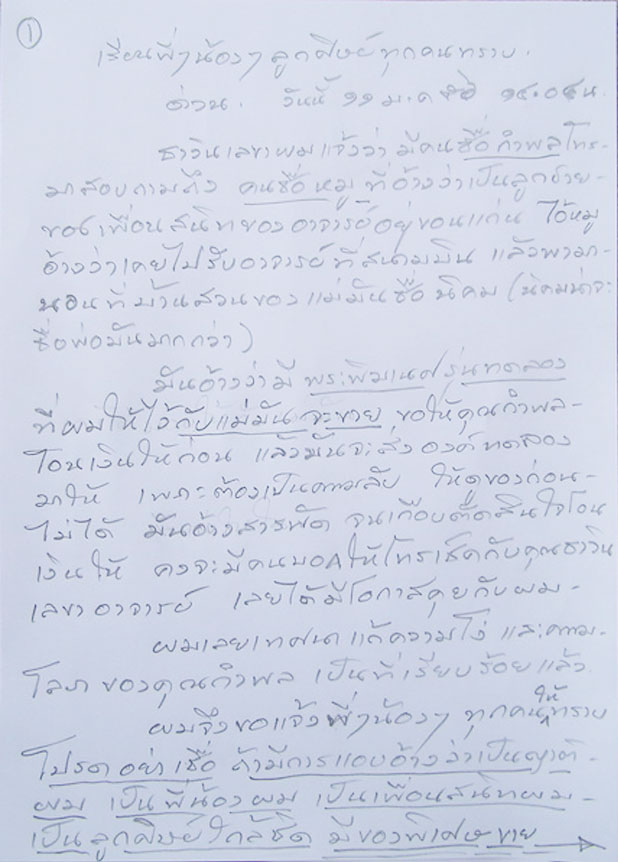 ①
เรียนพี่ๆน้องๆ ลูกศิษย์ทุกคนทราบ.
ด่วน. วันนี้ ๑๑ ม.ค ๑๕.๐๕ น.
ธาวินเลขาผมแจ้งว่า มีคนชื่อ กำพล โทร-
มาสอบถามถึง คนชื่อ หมู ที่อ้างว่าเป็นลูกชาย-
ของเพื่อนสนิทของอาจารย์อยู่ขอนแก่น ไอ้หมู
อ้างว่าเคยไปรับอาจารย์ที่สนามบิน แล้วพามา-
นอนที่บ้านสวนของแม่มันชื่อ นิคม (นิคมน่าจะ
ชื่อพ่อมันมากกว่า)
มันอ้างว่ามี พระพิฆเนศรุ่นทดลอง
ที่ผมให้ไว้กับแม่มัน จะขาย ขอให้คุณกำพล-
โอนเงินให้ก่อน แล้วมันจะส่ง องค์ทดลอง
มาให้ เพราะต้องเป็นความลับ ให้ดูของก่อน-
ไม่ได้ มันอ้างสารพัด จนเกือบตัดสินใจโอน
เงินให้ คงจะมีคนบอกให้โทรเช็คกับคุณธาวิน
เลขาอาจารย์ เลยได้มีโอกาสคุยกับผม-
ผมเลยเทศนา แก้ความโง่ และความ-
โลภ ของคุณกำพล เป็นที่เรียบร้อยแล้ว
ผมจึงขอแจ้งพี่ๆน้องๆ ทุกคนให้ทราบ
โปรดอย่าเชื่อ ถ้ามีการแอบอ้างว่าเป็นญาติ-
ผม เป็นพี่น้องผม เป็นเพื่อนสนิทผม-
เป็นลูกศิษย์ใกล้ชิด มีของพิเศษขาย